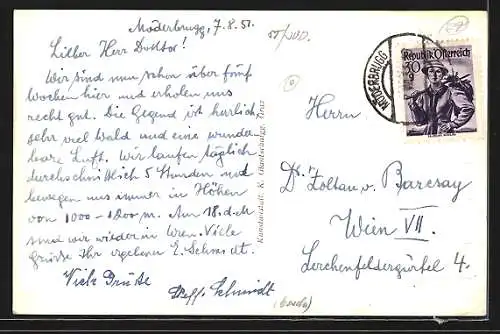 Möderbrugg, 7.8.51.
Lieber Herr Doktor!
Wir sind nun schon über fünf
Wochen hier und erholen uns
recht gut. Die Gegend ist herrlich,
sehr viel Wald und eine wunder-
bare Luft. Wir laufen täglich
durchschnittlich 5 Stunden und
bewegen uns immer in Höhen
von 1000 - 1200 m. Am 18. d.
sind wir wieder in Wien. Viele
Grüße Ihr E. Schmidt
Viele Grüße
Schmidt
Kunstanstalt K. Graz
MÖDERBRUGG
Republik Österreich
30
g
Herrn
Dr. Zoltan v. Barcsay
Wien VII.
Lerchenfeldergürtel 4.